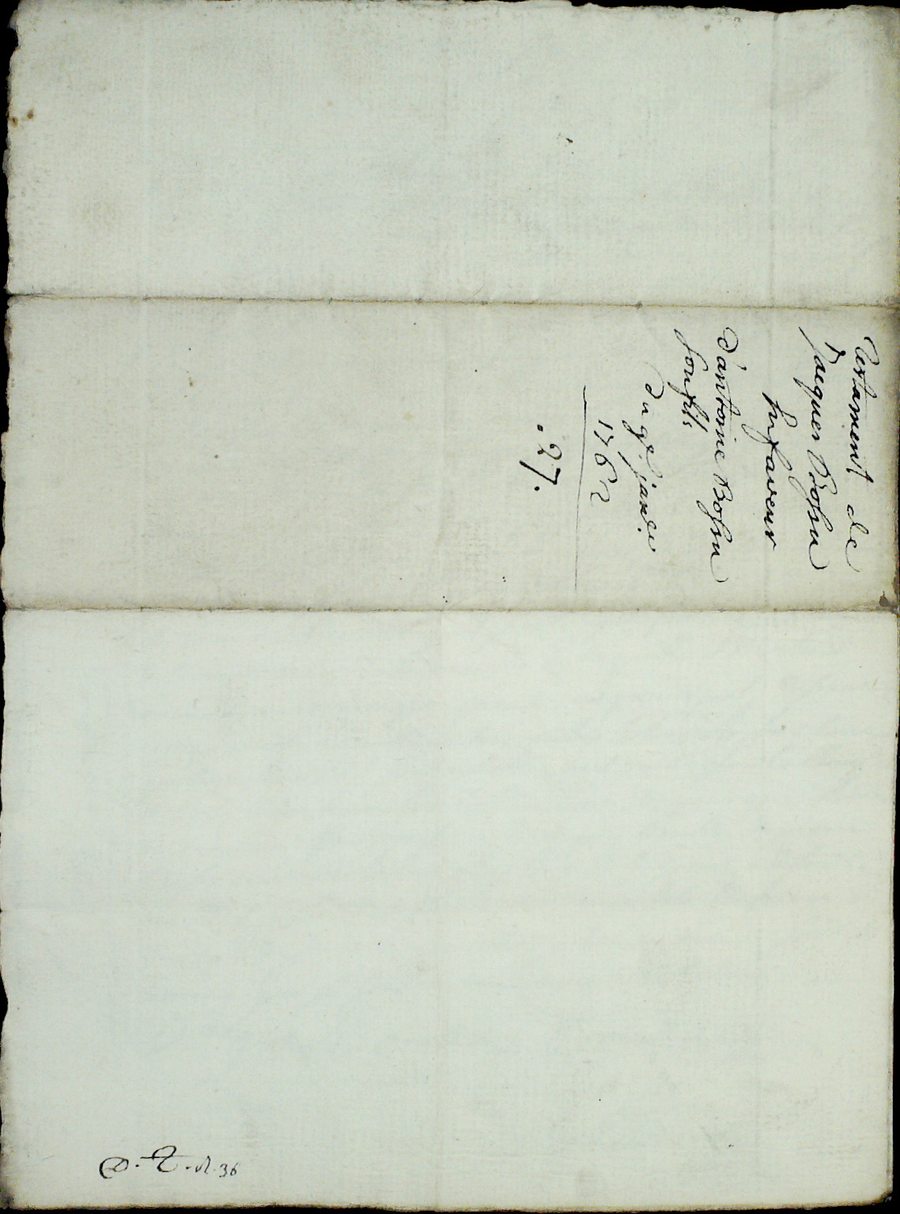 Testament de
Jacques Bossu
En faveur
d'antoine Bossu
son fils
du 9e. janv.
1762
.27.
36